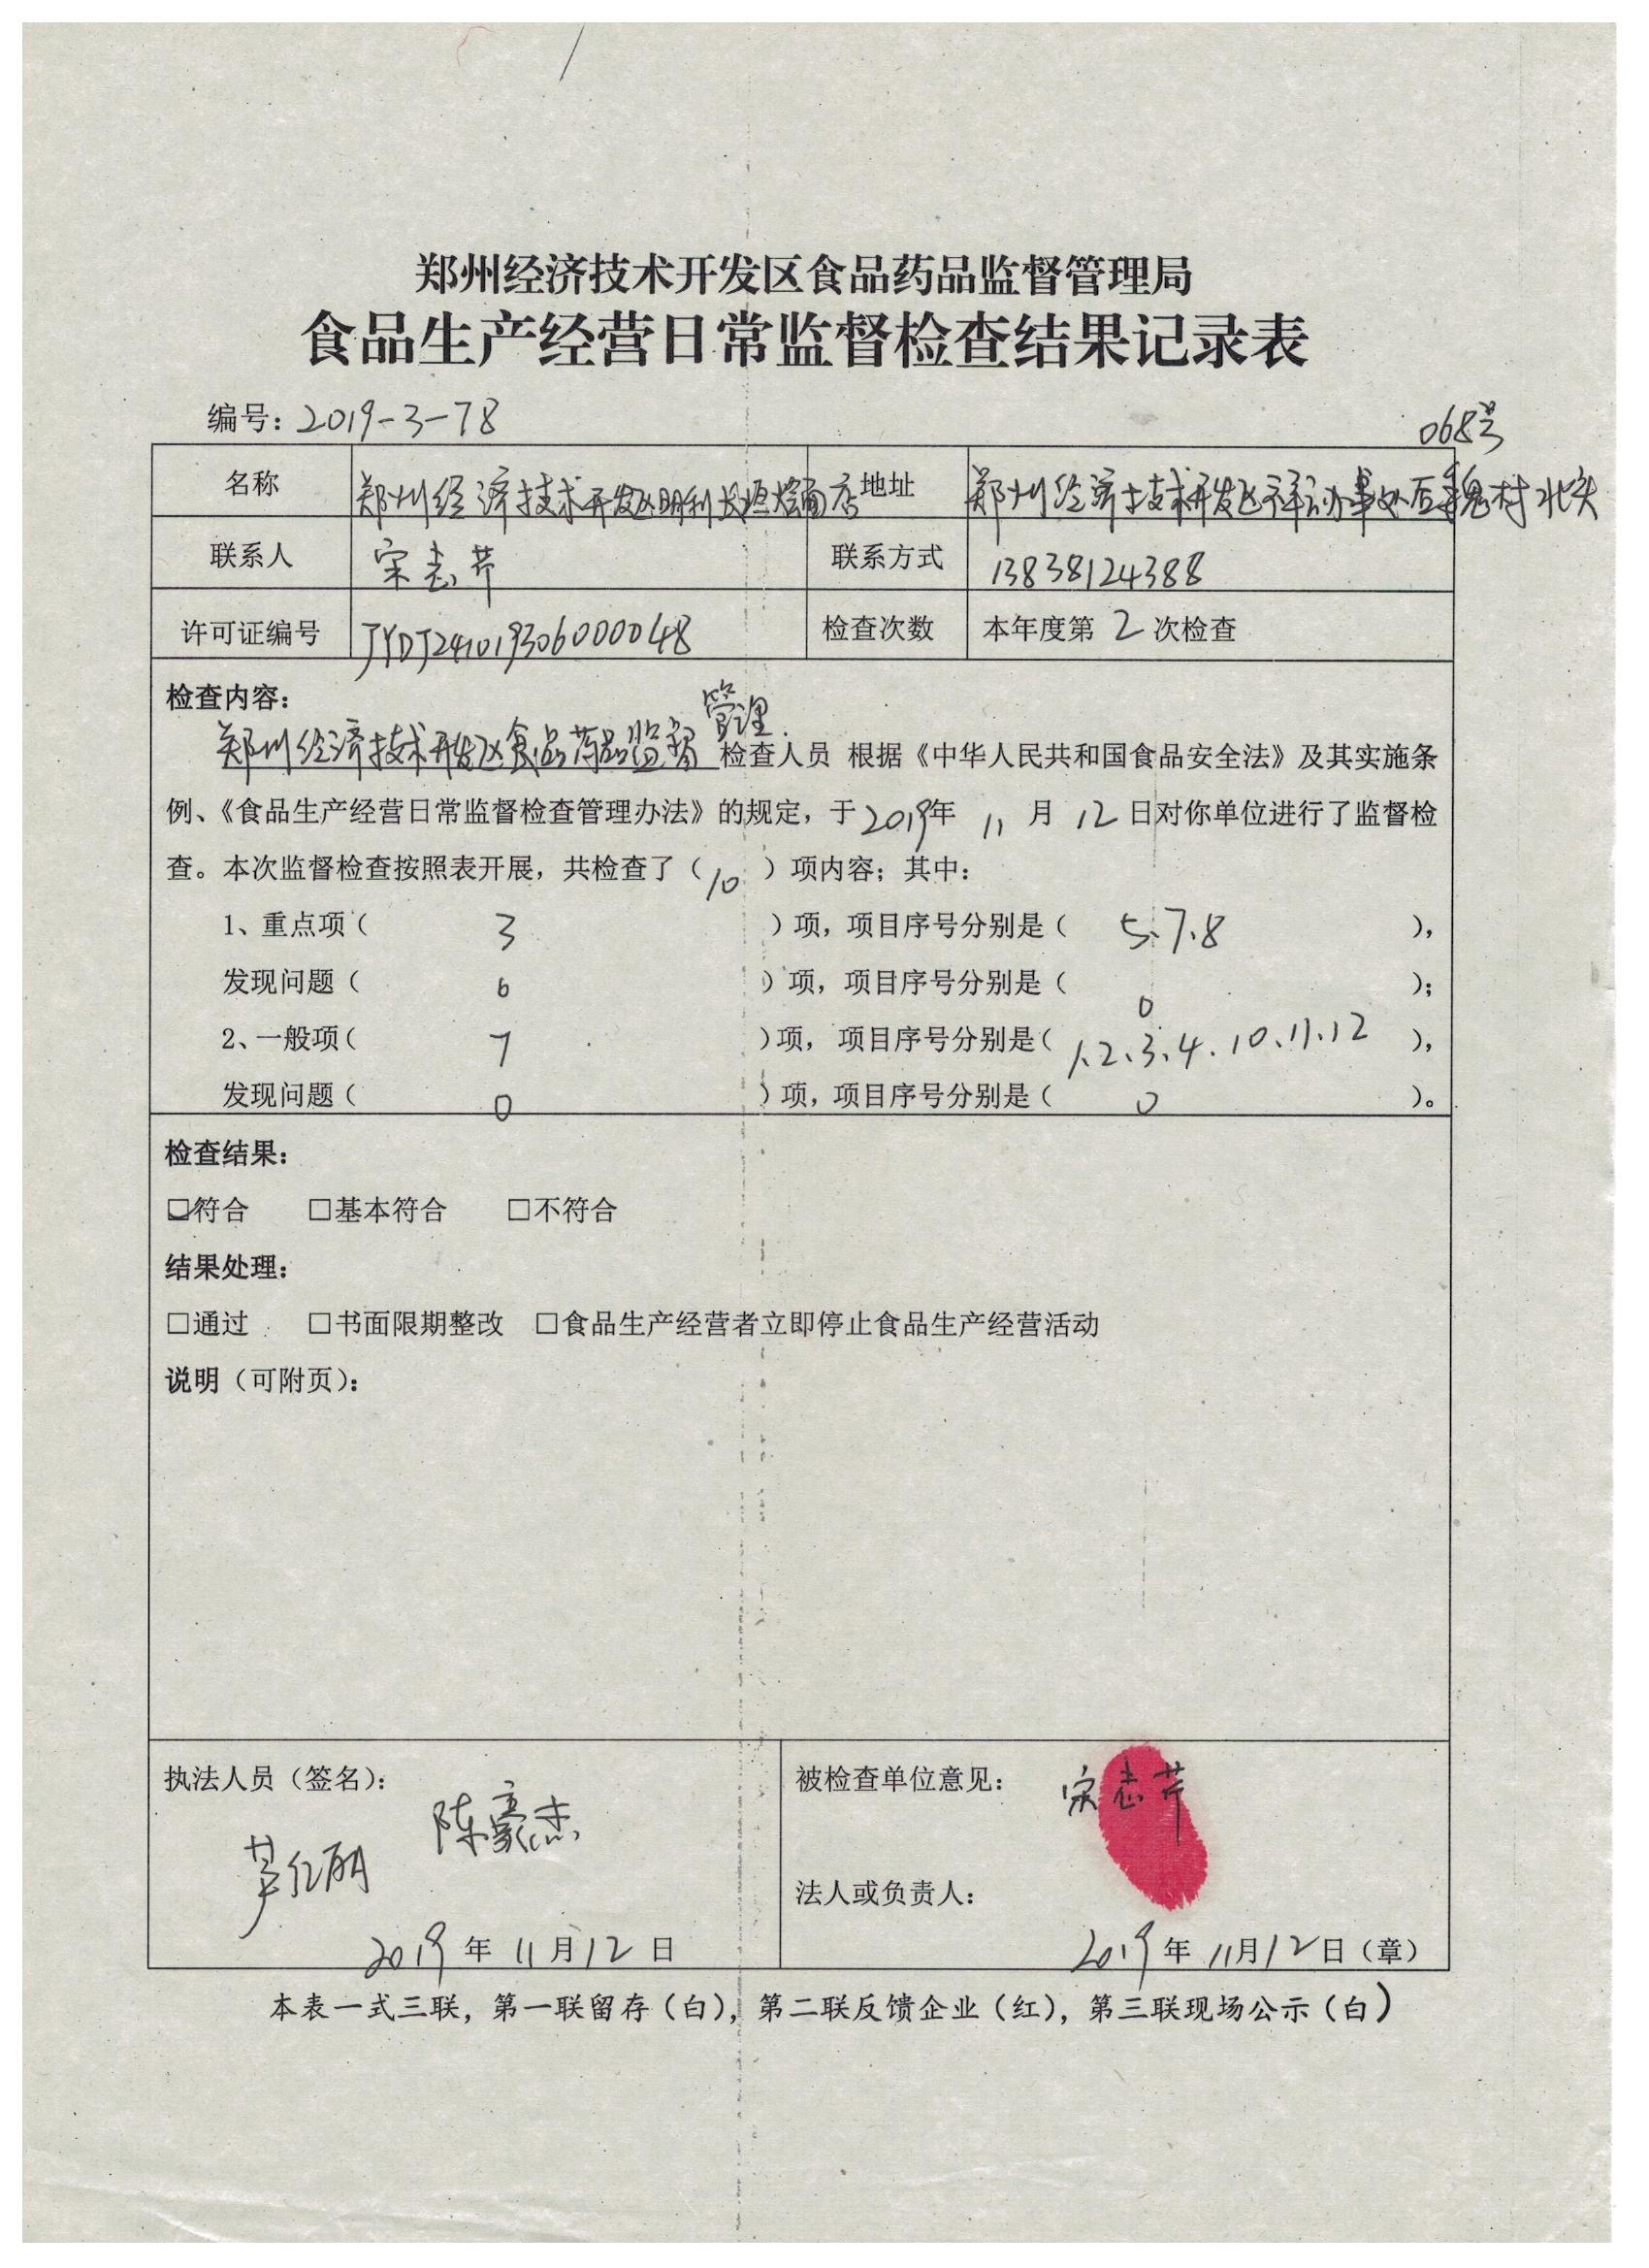 郑州经济技术开发区食品药品监督管理局
食品生产经营日常监督检查结果记录表
编号：2019-3-78
068号
名称 郑州经济技术开发区明利长垣烩面店 地址 郑州经济技术开发区祥云办事处后魏村北头
联系人 宋志芹 联系方式 13838124388
许可证编号 JYDJ2410193060000048 检查次数 本年度第 2 次检查
检查内容：
管理
郑州经济技术开发区食品药品监督 检查人员 根据《中华人民共和国食品安全法》及其实施条
例、《食品生产经营日常监督检查管理办法》的规定，于2019年 11 月 12 日对你单位进行了监督检
查。本次监督检查按照表开展，共检查了（10）项内容；其中：
1、重点项（ 3 ）项，项目序号分别是（ 5、7、8 ），
发现问题（ 0 ）项，项目序号分别是（ 0 ）；
2、一般项（ 7 ）项，项目序号分别是（ 1、2、3、4、10、11、12 ），
发现问题（ 0 ）项，项目序号分别是（ 0 ）。
检查结果：
☑符合 □基本符合 □不符合
结果处理：
□通过 □书面限期整改 □食品生产经营者立即停止食品生产经营活动
说明（可附页）：
执法人员（签名）： 被检查单位意见： 宋志芹
陈豪杰
法人或负责人：
2019 年 11月12 日 2019 年 11月12日（章）
本表一式三联，第一联留存（白），第二联反馈企业（红），第三联现场公示（白）